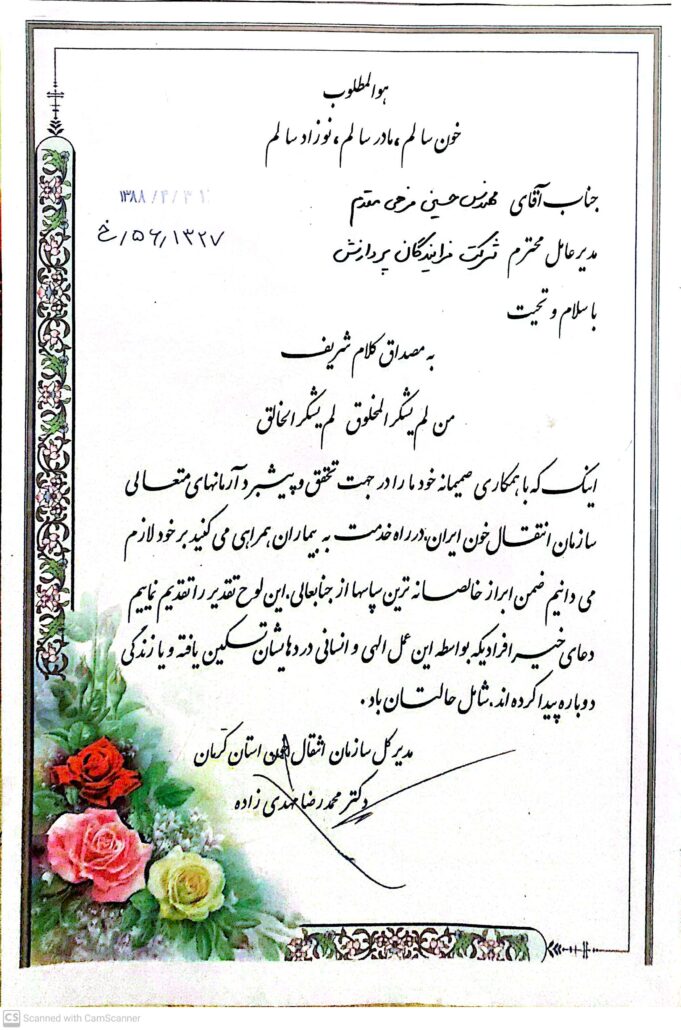 هوالمطلوب
خون سالم، مادر سالم، نوزاد سالم
جناب آقای مهندس حسینی فرخی مقدم
۱۳۸۸/۴/۳
مدیر عامل محترم شرکت فرایندگان پردازش
۱۳۲۷/۵۶/خ
با سلام و تحیت
به مصداق کلام شریف
من لم یشکر المخلوق لم یشکر الخالق
اینک که با همکاری صمیمانه خود ما را در جهت تحقق و پیشبرد آرمانهای متعالی
سازمان انتقال خون ایران، در راه خدمت به بیماران همراهی می کنید بر خود لازم
می دانیم ضمن ابراز خالصانه ترین سپاسها از جنابعالی، این لوح تقدیر را تقدیم نماییم
دعای خیر افرادیکه بواسطه این عمل الهی و انسانی دردهایشان تسکین یافته و یا زندگی
دوباره پیدا کرده اند، شامل حالتان باد.
مدیر کل سازمان انتقال خون استان کرمان
دکتر محمد رضا مهدی زاده
CS Scanned with CamScanner